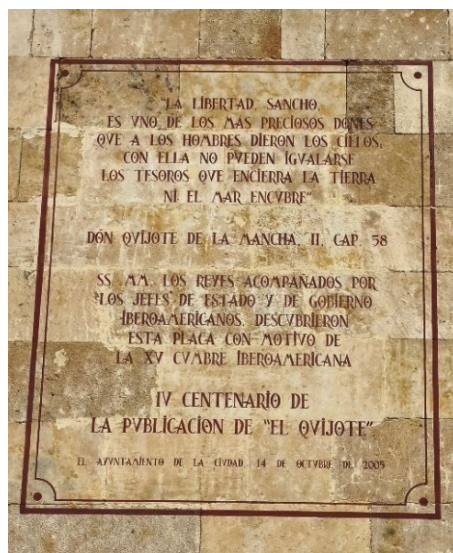 "LA LIBERTAD, SANCHO,
ES VNO DE LOS MAS PRECIOSOS DONES
QVE A LOS HOMBRES DIERON LOS CIELOS;
CON ELLA NO PVEDEN IGVALARSE
LOS TESOROS QVE ENCIERRA LA TIERRA
NI EL MAR ENCVBRE"
DON QVIJOTE DE LA MANCHA, II, CAP. 58
SS. MM. LOS REYES ACOMPAÑADOS POR
LOS JEFES DE ESTADO Y DE GOBIERNO
IBEROAMERICANOS, DESCVBRIERON
ESTA PLACA CON MOTIVO DE
LA XV CVMBRE IBEROAMERICANA
IV CENTENARIO DE
LA PVBLICACION DE "EL QVIJOTE"
EL AYVNTAMIENTO DE LA CIVDAD, 14 DE OCTVBRE DE 2005